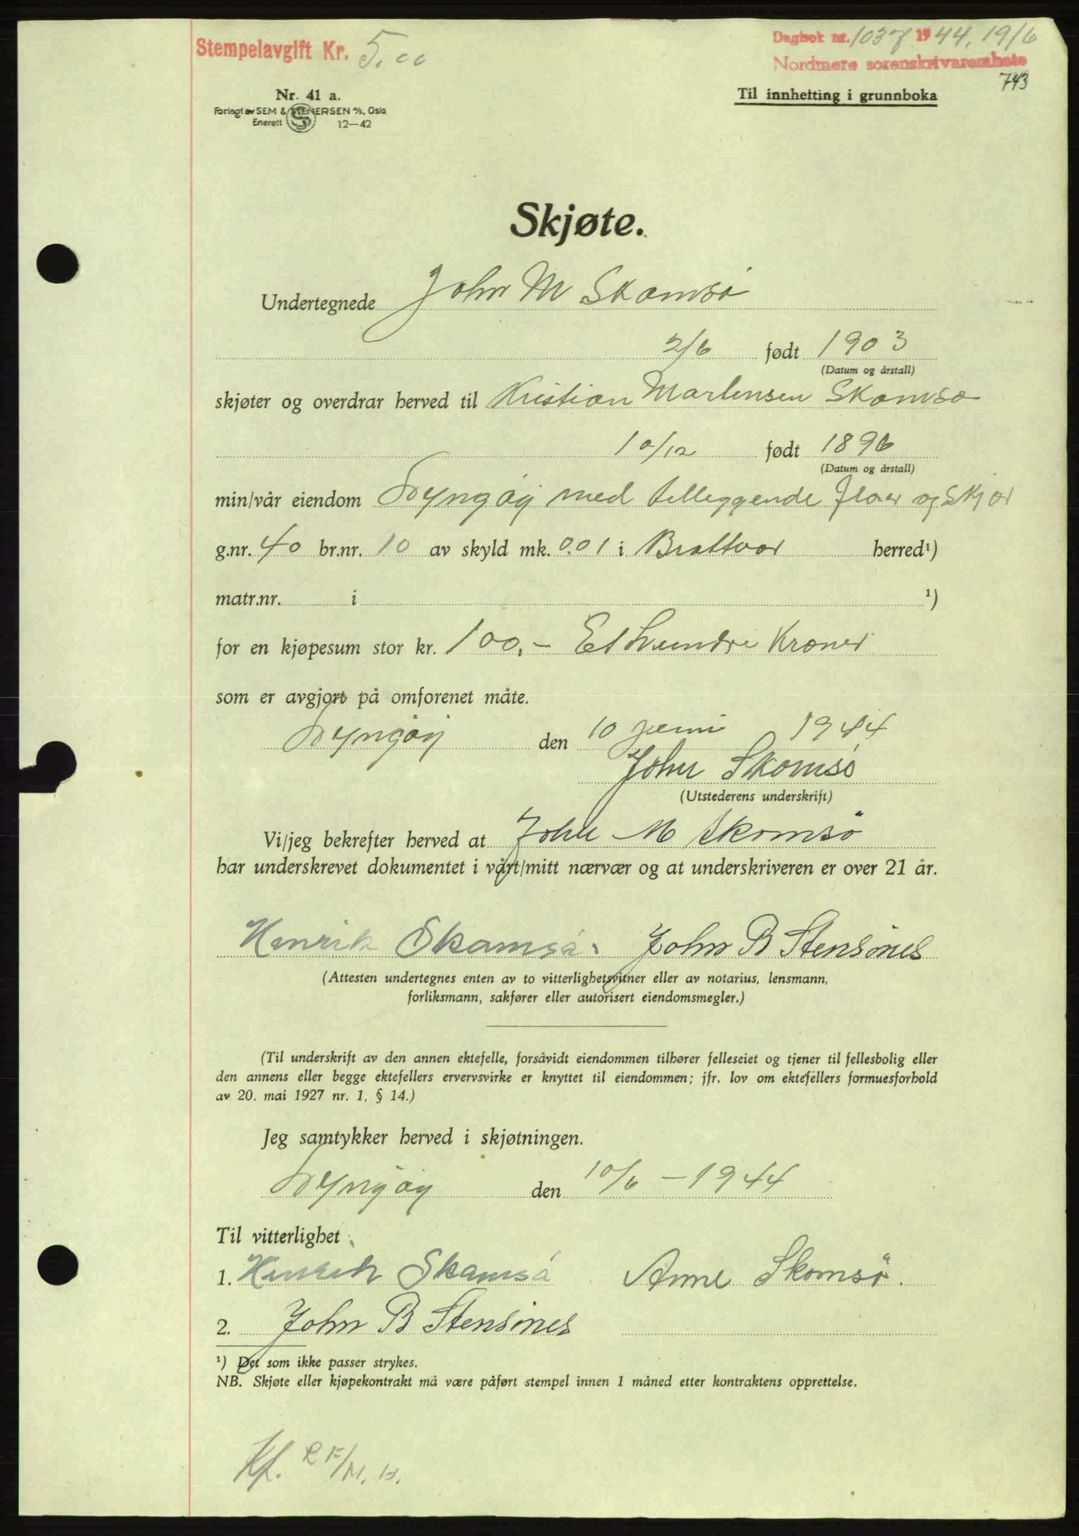 Stempelavgift Kr. 5.00
Dagbok nr. 1037 1944, 19/6
Nordmøre sorenskriverembete
743
Nr. 41 a.
Forlagt av SEM & STENERSEN A/S, Oslo
Enerett 12—42
Til innhetting i grunnboka
Skjøte.
Undertegnede John M Skomsø
2/6 født 1903
(Datum og årstall)
skjøter og overdrar herved til Kristian Martensen Skomsø
10/12 født 1896
(Datum og årstall)
min/vår eiendom Lyngøy med tilleggende fluer og Skjær
g.nr. 40 br.nr. 10 av skyld mk. 0.01 i Brattvær herred¹)
matr.nr. i ¹)
for en kjøpesum stor kr. 100,- Ethundre Kroner
som er avgjort på omforenet måte.
Lyngøy den 10 juni 1944
John Skomsø
(Utstederens underskrift)
Vi/jeg bekrefter herved at John M Skomsø
har underskrevet dokumentet i vårt/mitt nærvær og at underskriveren er over 21 år.
Henrik Skamsø. John B Stensønes
(Attesten undertegnes enten av to vitterlighetsvitner eller av notarius, lensmann,
forliksmann, sakfører eller autorisert eiendomsmegler.)
(Til underskrift av den annen ektefelle, forsåvidt eiendommen tilhører felleseiet og tjener til fellesbolig eller
den annens eller begge ektefellers ervervsvirke er knyttet til eiendommen; jfr. lov om ektefellers formuesforhold
av 20. mai 1927 nr. 1, § 14.)
Jeg samtykker herved i skjøtningen.
Lyngøy den 10/6 - 1944
Til vitterlighet
1. Henrik Skamsø Anne Skomsø.
2. John B Stensønes
¹) Det som ikke passer strykes.
NB. Skjøte eller kjøpekontrakt må være påført stempel innen 1 måned etter kontraktens opprettelse.
Kf.